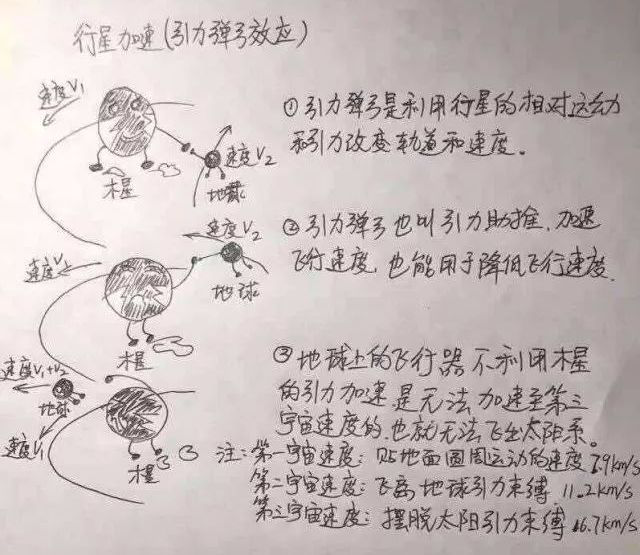 行星加速(引力弹弓效应)
速度V1
速度V2
木星
①引力弹弓是利用行星的相对运动
和引力改变轨道和速度。
速度V2
速度V1
地球
木星
②引力弹弓也叫引力助推,加速
飞行速度,也能用于降低飞行速度.
速度V1+V2
地球
速度V1
木星
③地球上的飞行器不利用木星
的引力加速是无法加速至第三
宇宙速度的,也就无法飞出太阳系。
注:第一宇宙速度:贴地面圆周运动的速度7.9km/s
第二宇宙速度:飞离地球引力束缚 11.2km/s
第三宇宙速度:摆脱太阳引力束缚 16.7km/s